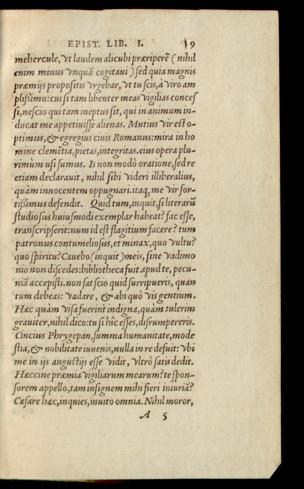 EPIST. LIB. I. 9
mehercule, vt laudem alicubi præriperē (nihil
enim minus vnquā cogitaui) sed quia magnis
præmijs propositis vrgebar, vt tu scis, à viro am
plissimo: cui si tam libenter meas vigilias concess
si, nescio qui tam ineptus sit, qui in animum in-
ducat me appetiuisse alienas. Mutius vir est o-
ptimus, & egregius ciuis Romanus: mira in ho
mine clemētia, pietas, integritas. eius opera plu
rimùm usi sumus. Is non modò oratione, sed re
etiam declarauit, nihil sibi videri illiberalius,
quàm innocentem oppugnari. itaq; me vir for-
tissimus defendit. Quid tum, inquit, si literarū
studiosus huiusmodi exemplar habeat? fac esse,
transcripserit: num id est flagitium facere? tum
patronus contumeliosus, et minax, quo vultu?
quo spiritu? Cauebo (inquit) meis, sine vadimo
nio non discedes: bibliotheca fuit apud te, pecu-
niā accepisti. non sat scio quid surripueris, quan
tum debeas: vadare, & abi quò vis gentium.
Hæc quàm visa fuerint indigna, quàm tulerim
grauiter, nihil dico: tu si hîc esses, disrumpereris.
Cincius Phrygepan, summa humanitate, mode
stia, & nobilitate iuuenis, nulla in re defuit: vbi
me in ijs angustijs esse vidit, vltrò satis dedit.
Hæccine præmia vigiliarum mearum? te spon-
sorem appello, tam insignem mihi fieri iniuriā?
Cæsare hæc, inquies, inuito omnia. Nihil moror,
A 5